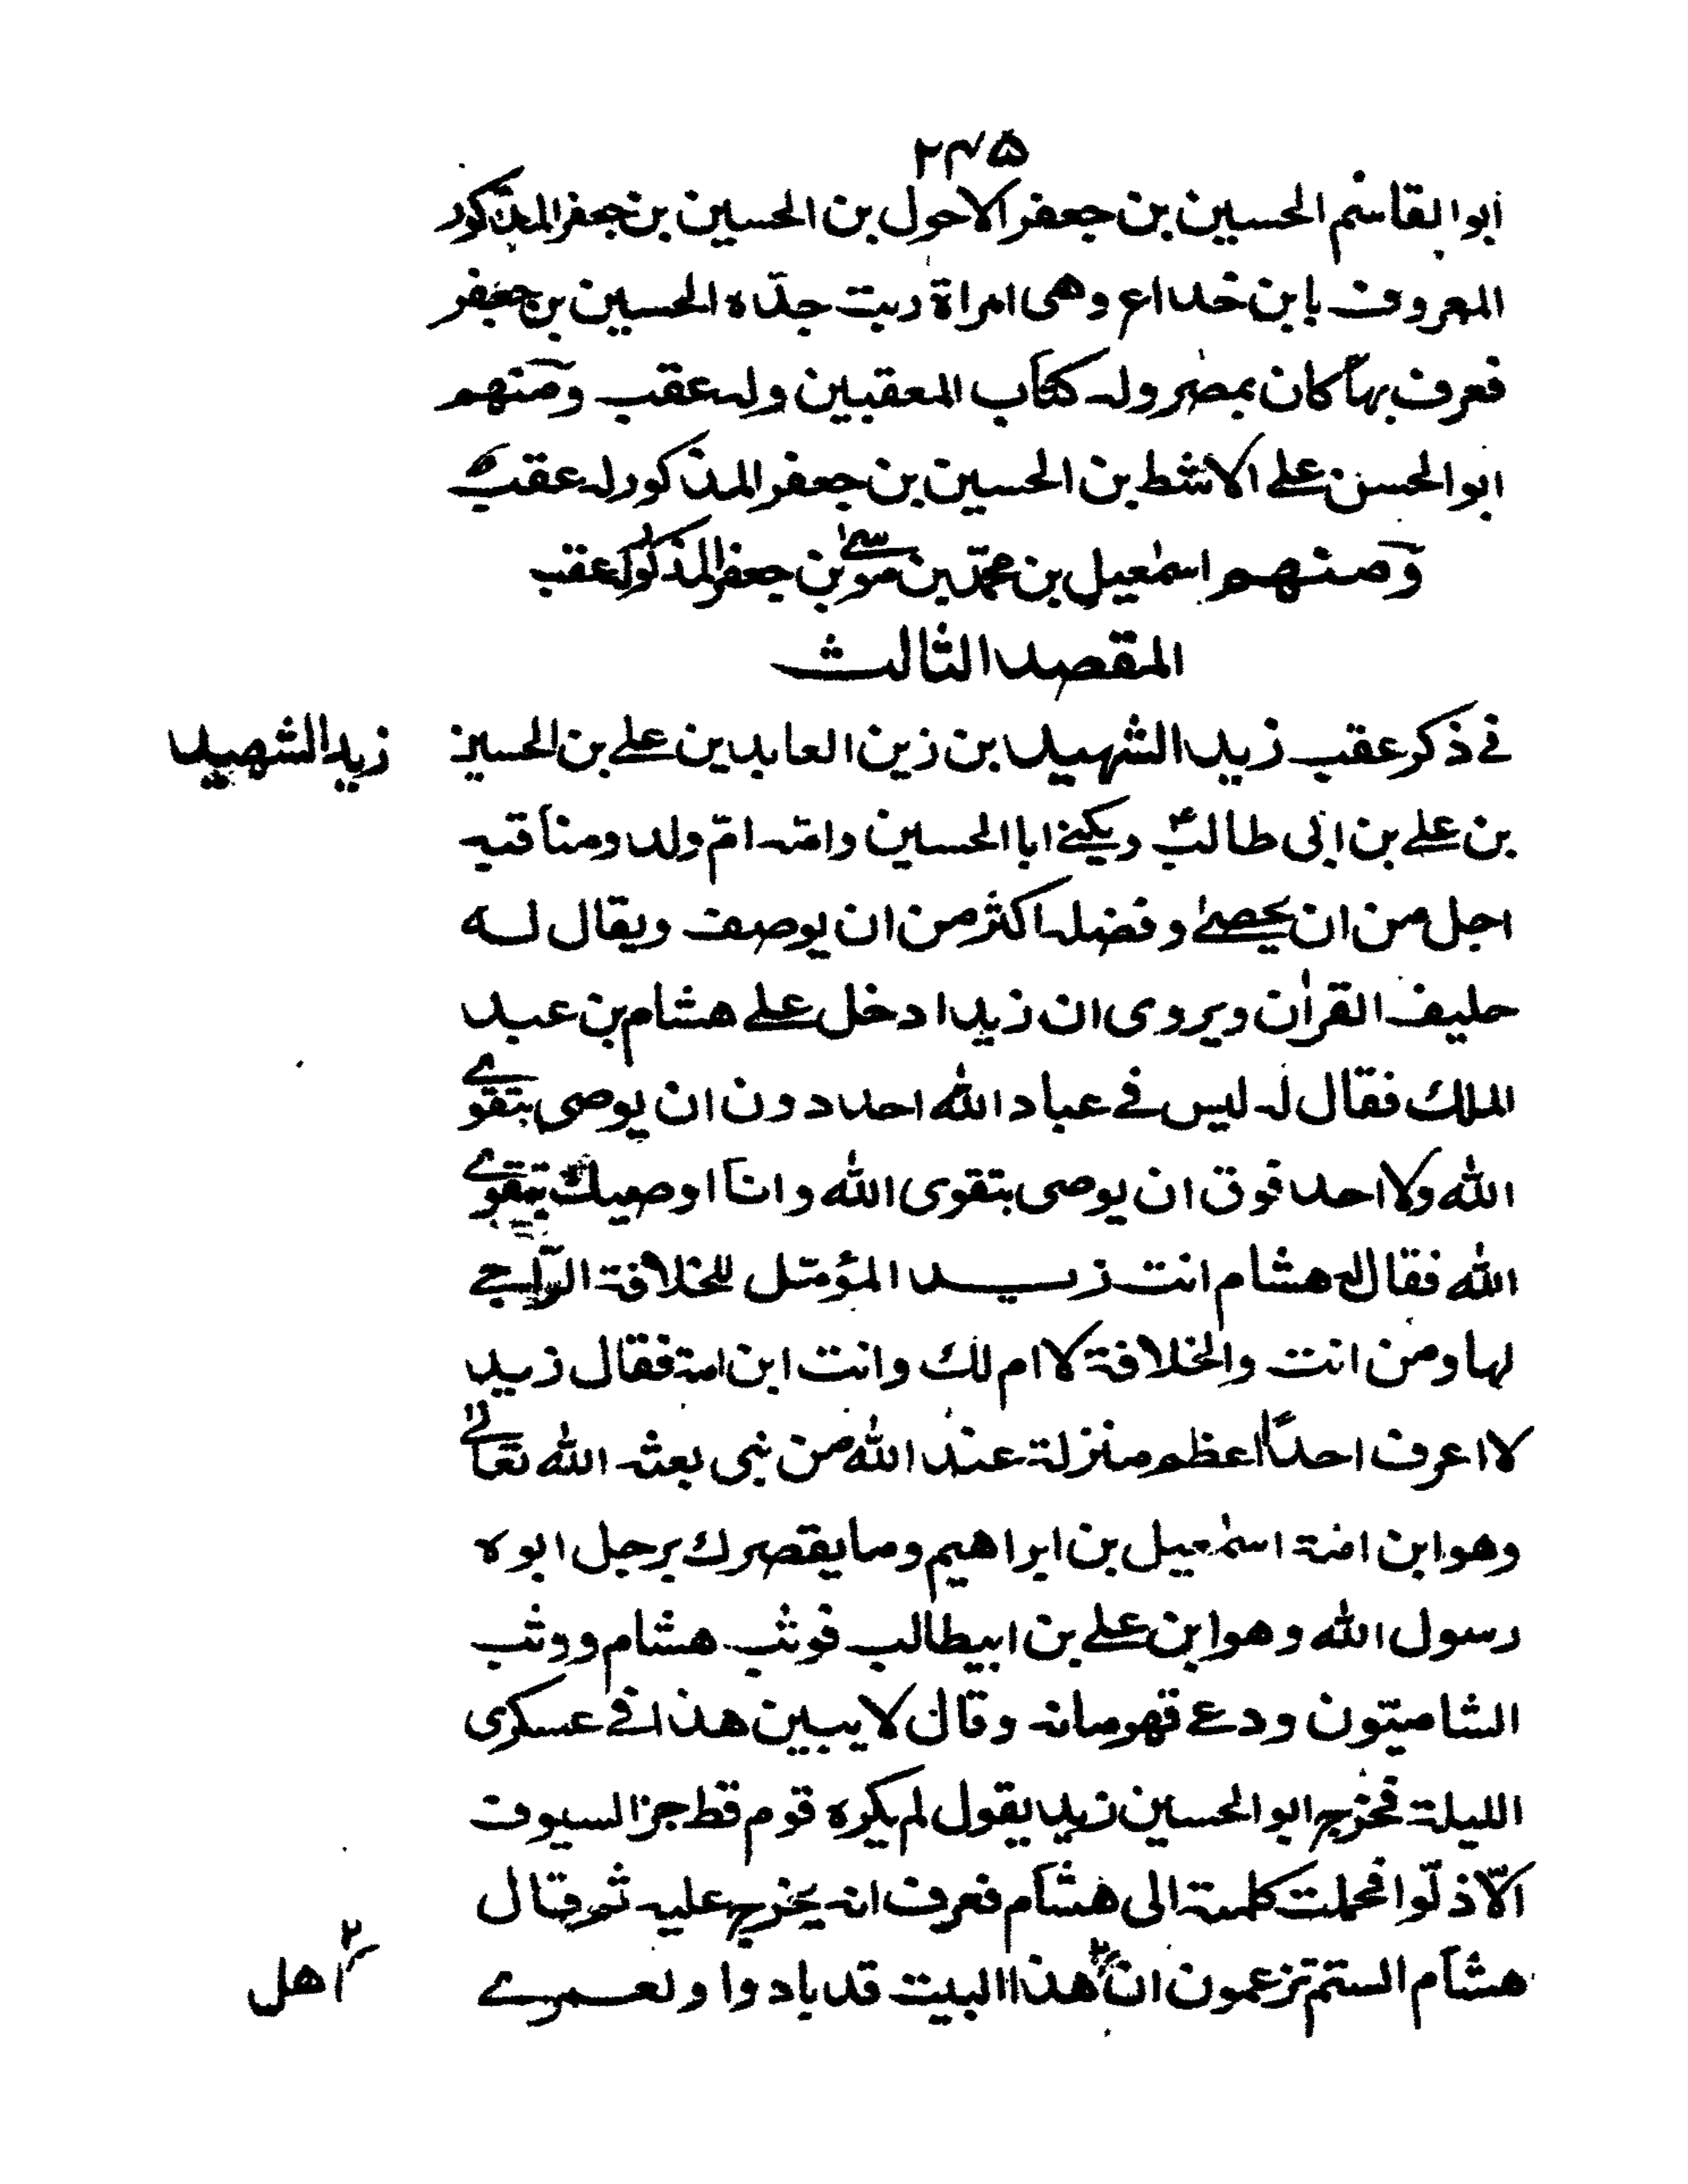 ۲۴۵
ابوالقاسم الحسین بن جعفر الاحول بن الحسین بن جعفر المذکور
المعروف بابن خداع وهی امراة ربت جدّه الحسین بن جعفر
فعرف بها کان بمصر وله کتاب المعقبین وله عقب ومنهم
ابوالحسن علے الاشط بن الحسین بن جعفر المذکور له عقب
ومنهم اسمٰعیل بن محمّد بن موسیٰ بن جعفر المذکور له عقب
المقصد الثالث
فے ذکر عقب زید الشهید بن زین العابدین علے بن الحسین
زید الشهید
بن علے بن ابی طالبؑ ویکنے ابا الحسین وامّه امّ ولد ومناقبه
اجل من ان یحصےٰ وفضله اکثر من ان یوصف ویقال له
حلیف القراٰن ویروی ان زیدا دخل علے هشام بن عبد
الملك فقال له لیس فے عباد الله احد دون ان یوصی بتقوے
الله ولا احد فوق ان یوصی بتقوی الله وانا اوصیك بتقوے
الله فقال له هشام انت زید المؤمّل للخلافة الرّاجے
لها ومن انت والخلافة لا ام لك وانت ابن امة فقال زید
لا اعرف احدًا اعظم منزلة عند الله من نبی بعثه الله تعالےٰ
وهو ابن امة اسمٰعیل بن ابراهیم وما یقصرك برجل ابوه
رسول الله وهو ابن علے بن ابیطالب فوثب هشام ووثب
الشامیّون ودعے قهرمانه وقال لا یبین هذا فے عسکری
اللیلة فخرج ابو الحسین زید یقول لم یکره قوم قط جز السیوف
الّا ذلّوا فحملت کلمة الی هشام فعرف انه یخرج علیه ثم قال
هشام الستم تزعمون ان هذا البیت قد بادوا ولعمرے
۲ اهل